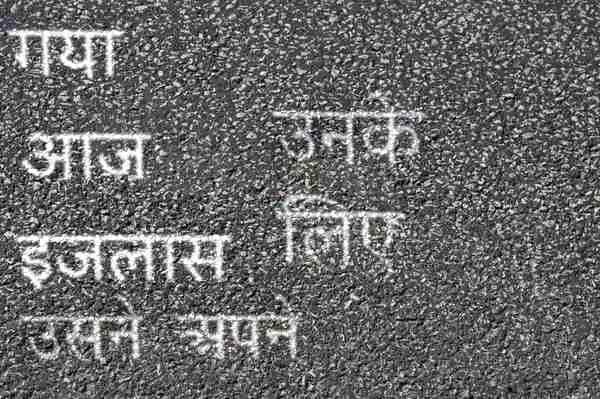 गया
आज
इजलास
उसने अपने
उनके
लिए